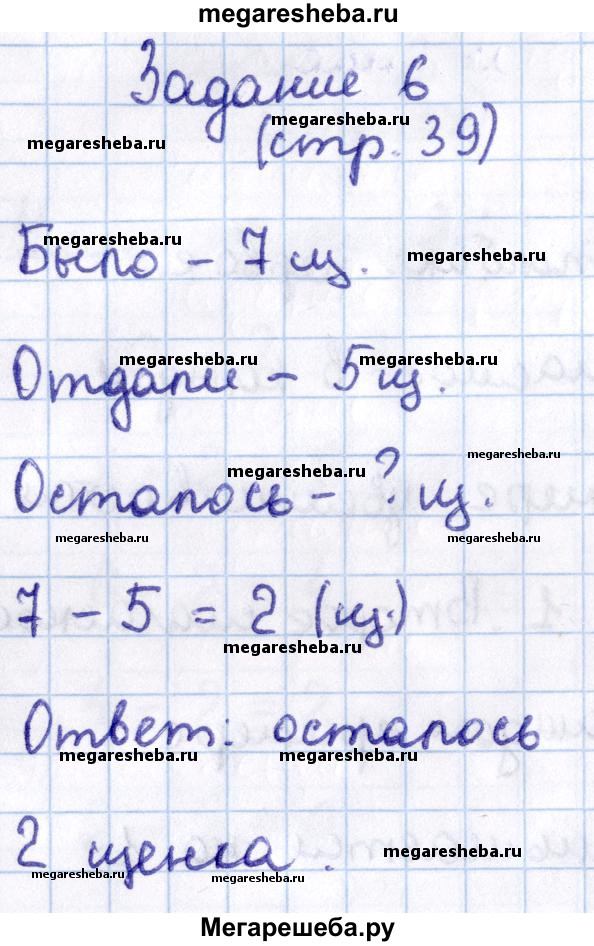 megaresheba.ru
Задание 6
megaresheba.ru
megaresheba.ru
(стр. 39)
megaresheba.ru
Было – 7 щ.
megaresheba.ru
megaresheba.ru megaresheba.ru
Отдали – 5 щ.
megaresheba.ru
megaresheba.ru
Осталось – ? щ.
megaresheba.ru megaresheba.ru
7 – 5 = 2 (щ.)
megaresheba.ru
Ответ: осталось
megaresheba.ru megaresheba.ru
2 щенка.
megaresheba.ru
megaresheba.ru megaresheba.ru
Мегарешеба.ру